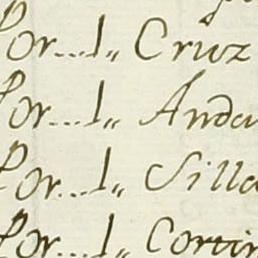 Por...1,, Cruz
Por...1,, Anda
Por...1,, Silla
Por...1,, Cortin